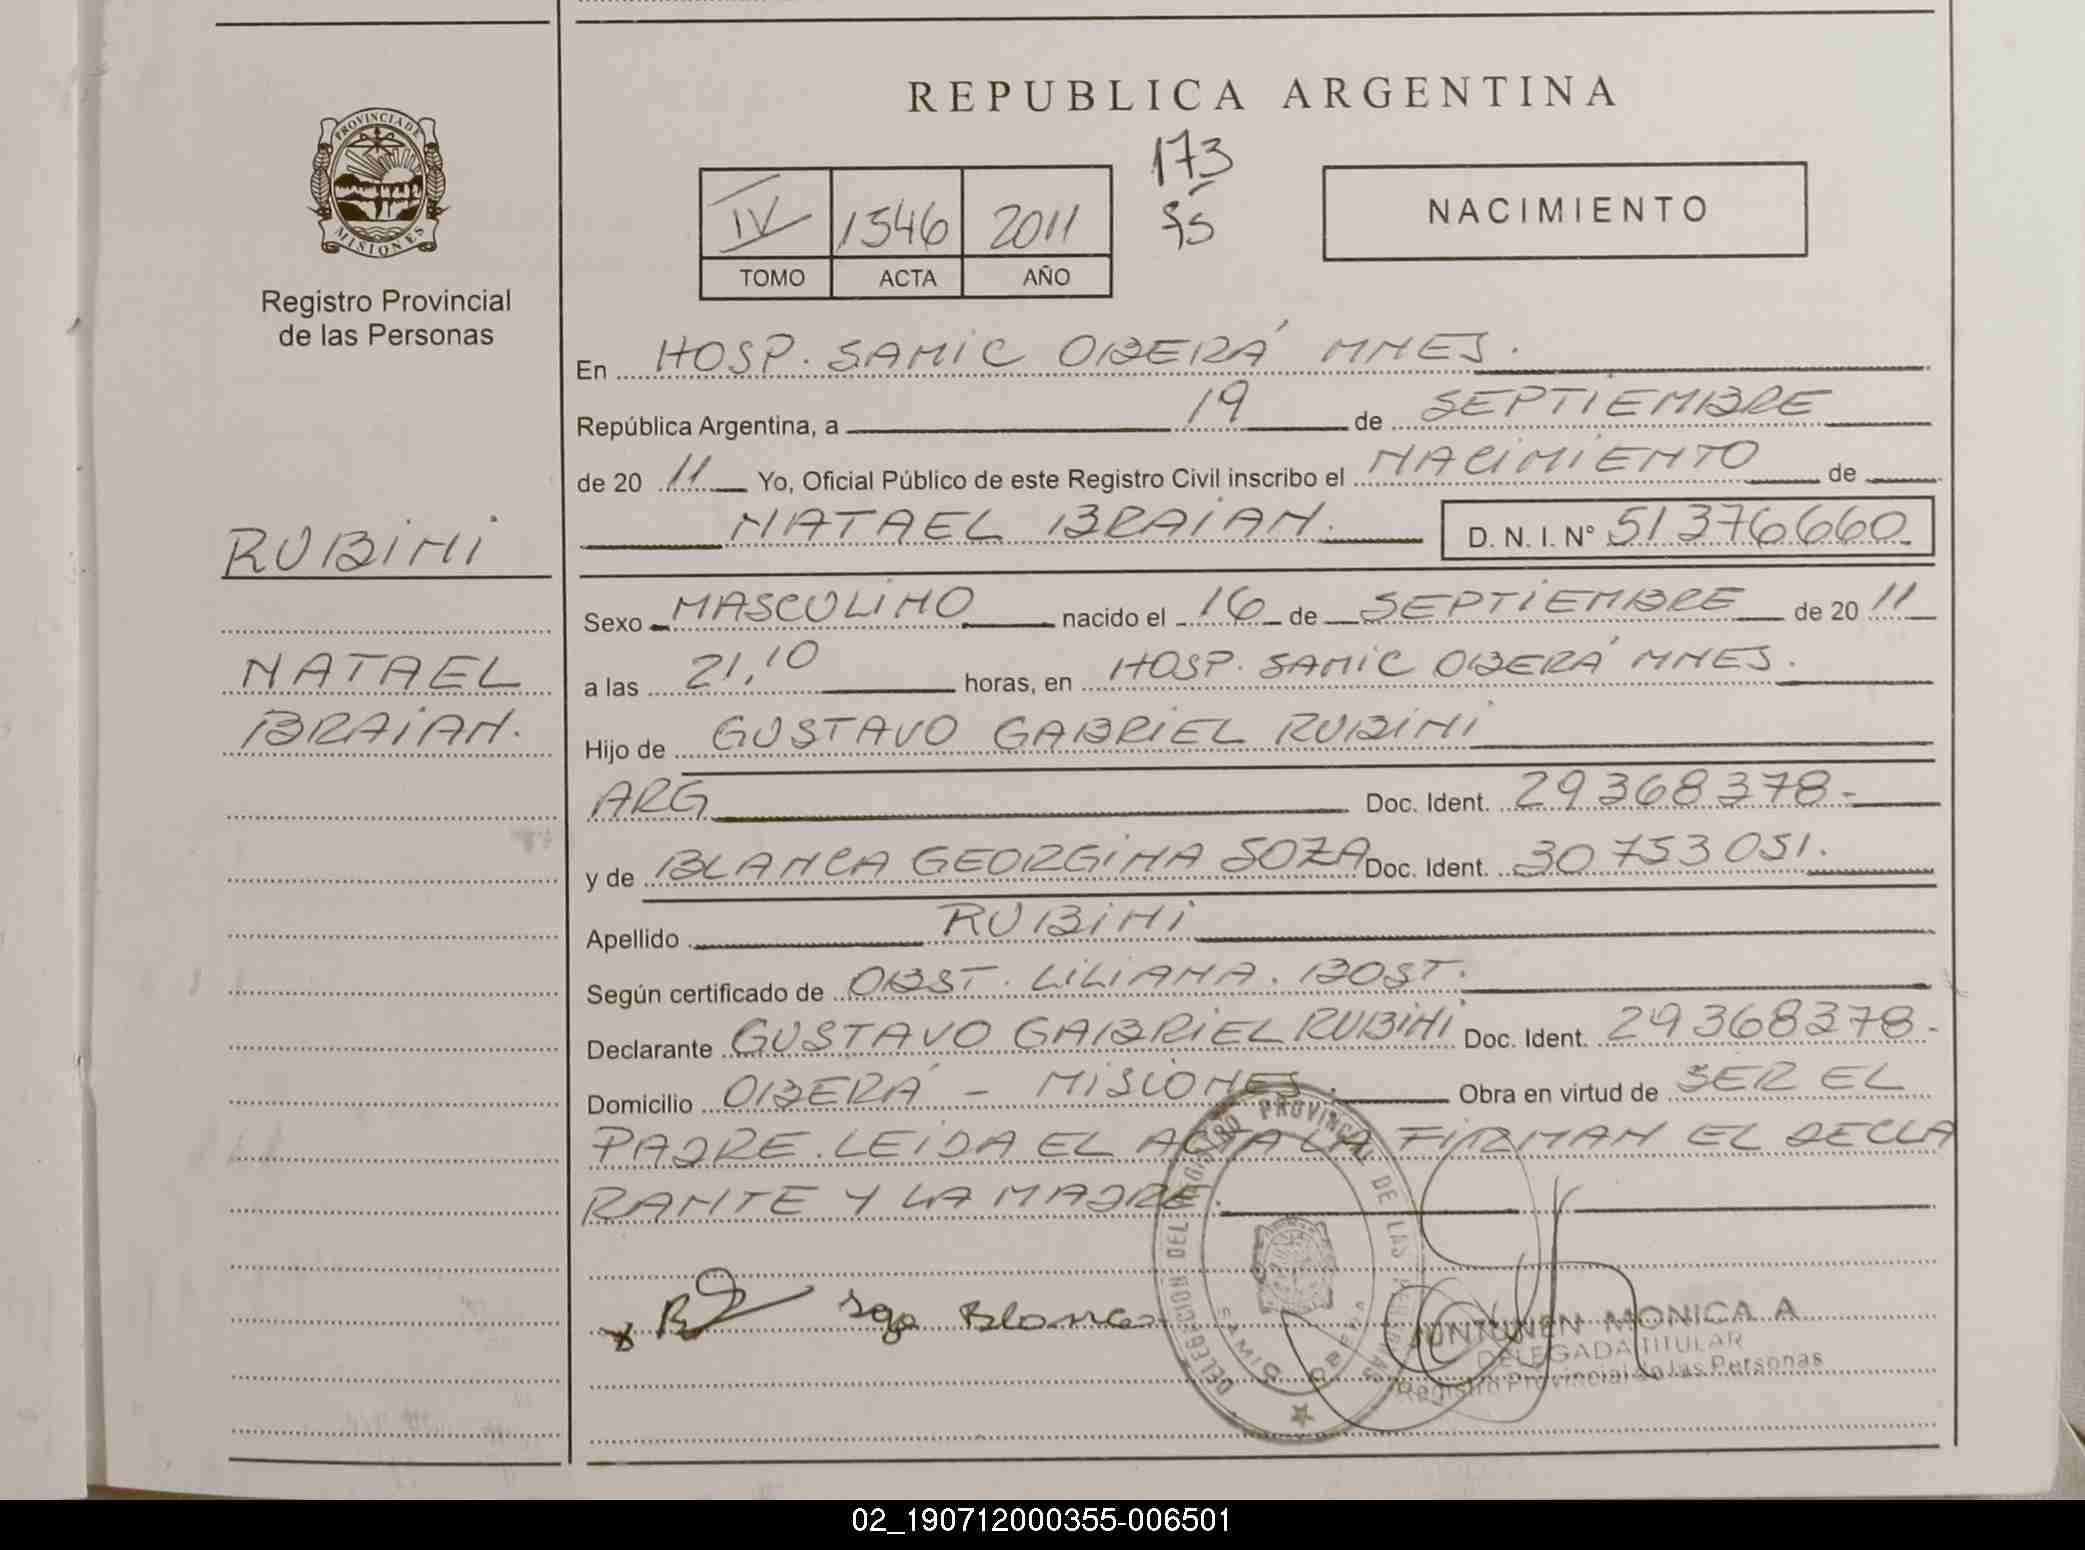 REPUBLICA ARGENTINA
PROVINCIA DE MISIONES
Registro Provincial
de las Personas
173
IV 1546 2011
TOMO ACTA AÑO
NACIMIENTO
En HOSP. SAMIC OBERÁ MNES.
República Argentina, a 19 de SEPTIEMBRE
de 20 11 Yo, Oficial Público de este Registro Civil inscribo el NACIMIENTO de
NATAEL BRAIAN. D. N. I. Nº 51376660
RUBINI
NATAEL
BRAIAN.
Sexo MASCULINO nacido el 16 de SEPTIEMBRE de 20 11
a las 21,10 horas, en HOSP. SAMIC OBERÁ MNES.
Hijo de GUSTAVO GABRIEL RUBINI
ARG Doc. Ident. 29368378-
y de BLANCA GEORGINA SOZA Doc. Ident. 30753051.
Apellido RUBINI
Según certificado de OBST. LILIANA. BOST.
Declarante GUSTAVO GABRIEL RUBINI Doc. Ident. 29368378-
Domicilio OBERÁ - MISIONES. Obra en virtud de SER EL
PADRE. LEIDA EL ACTA LA FIRMAN EL DECLA
RANTE Y LA MADRE.
Blanca
DELEGACION DEL REGISTRO PROVINCIAL DE LAS PERSONAS
SAMIC OBERA
JUNTUNEN MONICA A
DELEGADA TITULAR
Registro Provincial de las Personas
02_190712000355-006501